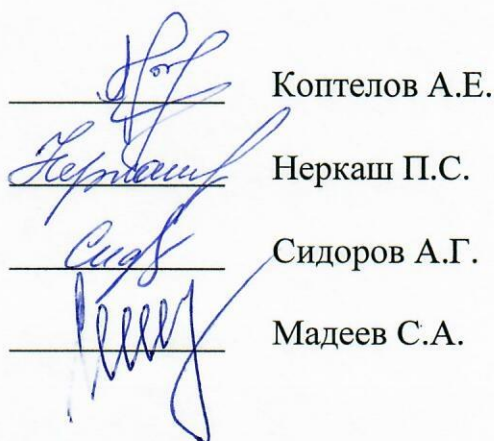 Коптелов А.Е.
Неркаш П.С.
Сидоров А.Г.
Мадеев С.А.